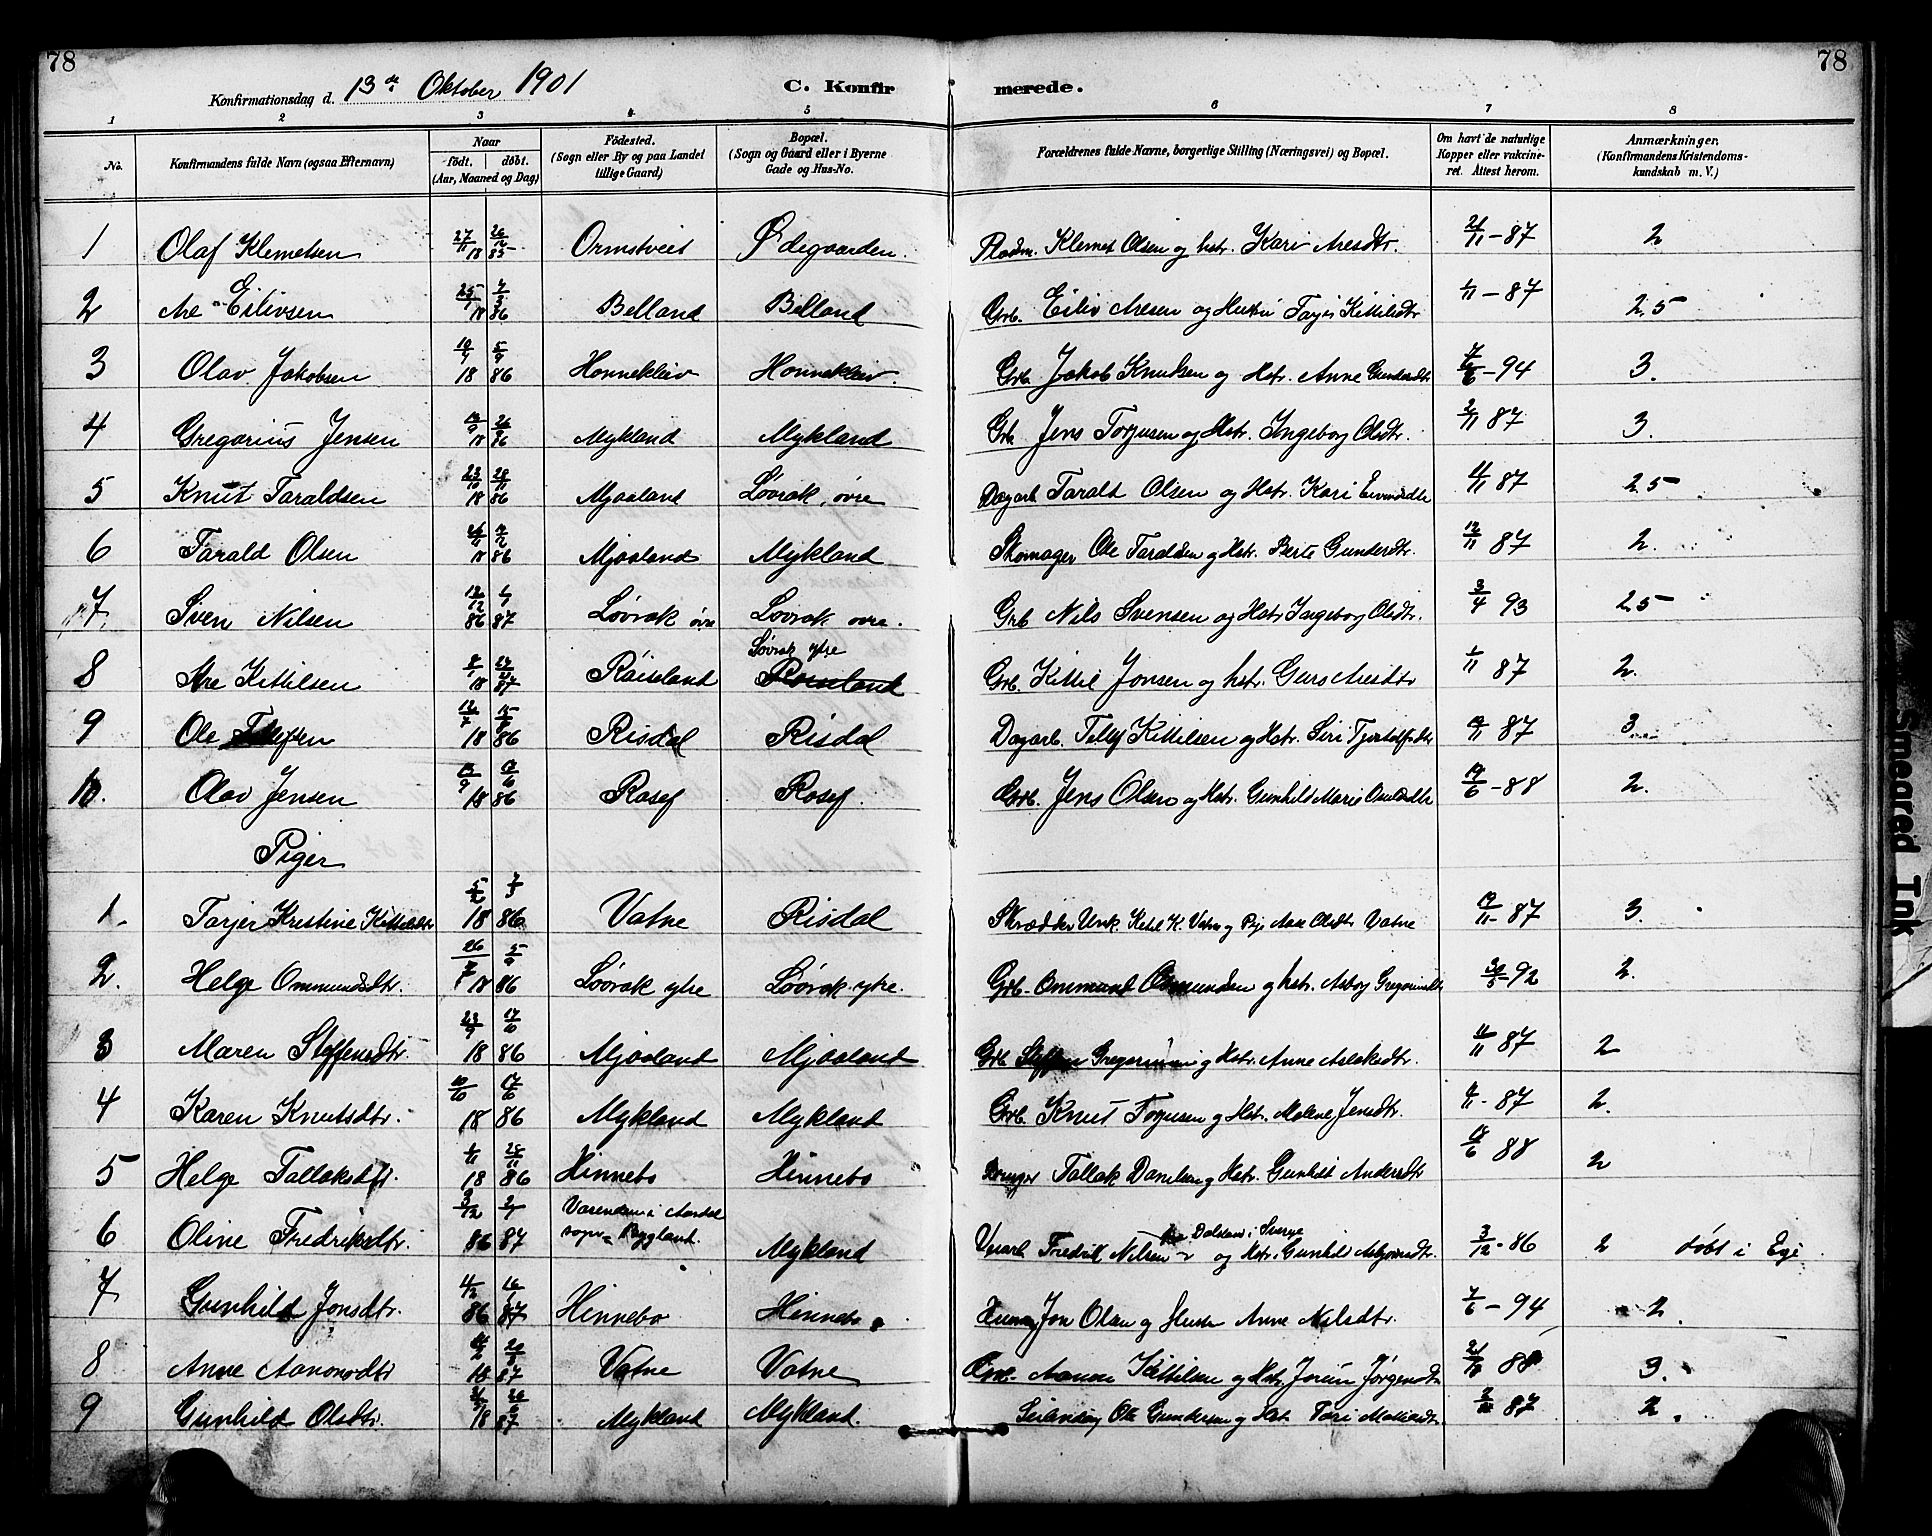 78
78
Konfirmationsdag d. 13de Oktober 1901
C. Konfirmerede.
1 2 3 4 5 6 7 8
No.
Konfirmandens fulde Navn (ogsaa Efternavn)
Naar
født. døbt.
(Aar, Maaned og Dag)
Födested.
(Sogn eller By og paa Landet
tillige Gaard)
Bopæl.
(Sogn og Gaard eller i Byerne
Gade og Hus-No.
Forældrenes fulde Navne, borgerlige Stilling (Næringsvei) og Bopæl.
Om havt de naturlige
Kopper eller vakcine-
ret. Attest herom.
Anmærkninger.
(Konfirmandens Kristendoms-
kundskab m. V.)
1 Olaf Klemetsen 27/11 26/12 18 85 Ormstveit Ødegaarden. Pladm. Klemet Olsen og hstr. Kari Aresdtr. 21/11 - 87 2
2 Are Eilivsen 18 86 Belland Belland Grb. Eiliv Aresen og Taxje Kittilsdtr 1/11 - 87 2,5
3 Olav Jakobsen 18 86 Honnekleiv Honnekleiv. Grb. Jakob Knudsen og Hstr. Anne Gundersdtr - 94 3.
4 Gregarius Jensen 18 86 Mykland Mykland Grb. Jens Torjusen og Hstr. Ingeborg Olsdtr. 2/11 87 3.
5 Knut Taraldsen 23/10 28/11 18 86 Mjaaland Løvrak, øvre Dagarb. Tarald Olsen og Hstr. Kari 87 2,5
6 Tarald Olsen 18 86 Mjaaland Mykland Skomager Ole Taraldsen og Hstr. Berte Gundersdtr. 12/11 87 2.
7 Sven Nilsen 12/12 86 87 Løvrak øvre Løvrak øvre. Grb Nils Svensen og Hstr Ingeborg Olsdtr. 3/4 93 2,5
Løvrak ytre
8 Are Kittilsen 18 87 Røiseland Grb. Kittil Jonsen og hstr. Guro Aresdtr 1/11 87 2.
9 Ole 12/7 18 86 Risdal Risdal Dagarb. Tellef Kittilsen og Hstr. Siri 87 3.
10. Olav Jensen 18 86 Rosef Rosef. Grb. Jens Olsen og Hstr. Gunhild Marie 19/6 - 88 2.
Piger
1. Tarjer Kristine Kittilsdtr 5/2 7/3 18 86 Vatne Risdal Skrædder Unk. Ketil K. Vatne og Pige Aase Olsdtr Vatne 87 3.
2. Helge Ommundsdtr. 18 86 Løvrak ytre Løvrak ytre. Grb. Ommund og hstr. Asborg 30/5 - 92 2.
3 Maren Steffensdtr. 23/9 17/10 18 86 Mjaaland Mjaaland Grb Steffen og Hstr. Anne Aslaksdtr. 11/11 87 2
4 Karen Knutsdtr. 10/10 17/10 18 86 Mykland Mykland Grb. Knut Torjusen og Hstr. Malene Jensdtr. - 87 2.
5 Helge Tallaksdtr. 28/11 18 86 Hinnebo Hinnebo Tallak Danielsen og Hstr. Gunhild Andersdtr 88 2
6 Oline Fredriksdtr. 3/12 2/1 86 87 i Aardal
sogn Bygland. Mykland Fredrik Nilsen Dalsland i Sverge og Hstr. Gunhild 3/12 - 86 2 døbt i Eje
7 Gunhild Jonsdtr. 4/12 16/1 86 87 Hinnebo Hinnebo Jon Olsen og Hustr Anne Nilsdtr. 7/6 - 94 2.
8 Anne Aanonsdtr 18 87 Vatne Vatne Aanon Kittilsen og Hstr. Jorun Jørgensdtr 88 3.
9 Gunhild Olsdtr. 18 87 Mykland Mykland. Ole Gundersen og Hstr Tori 87 2.
Smeared Ink